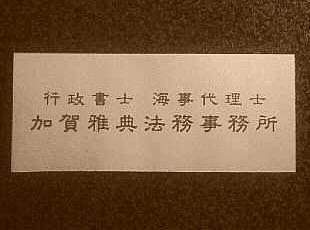 行政書士 海事代理士
加賀雅典法務事務所